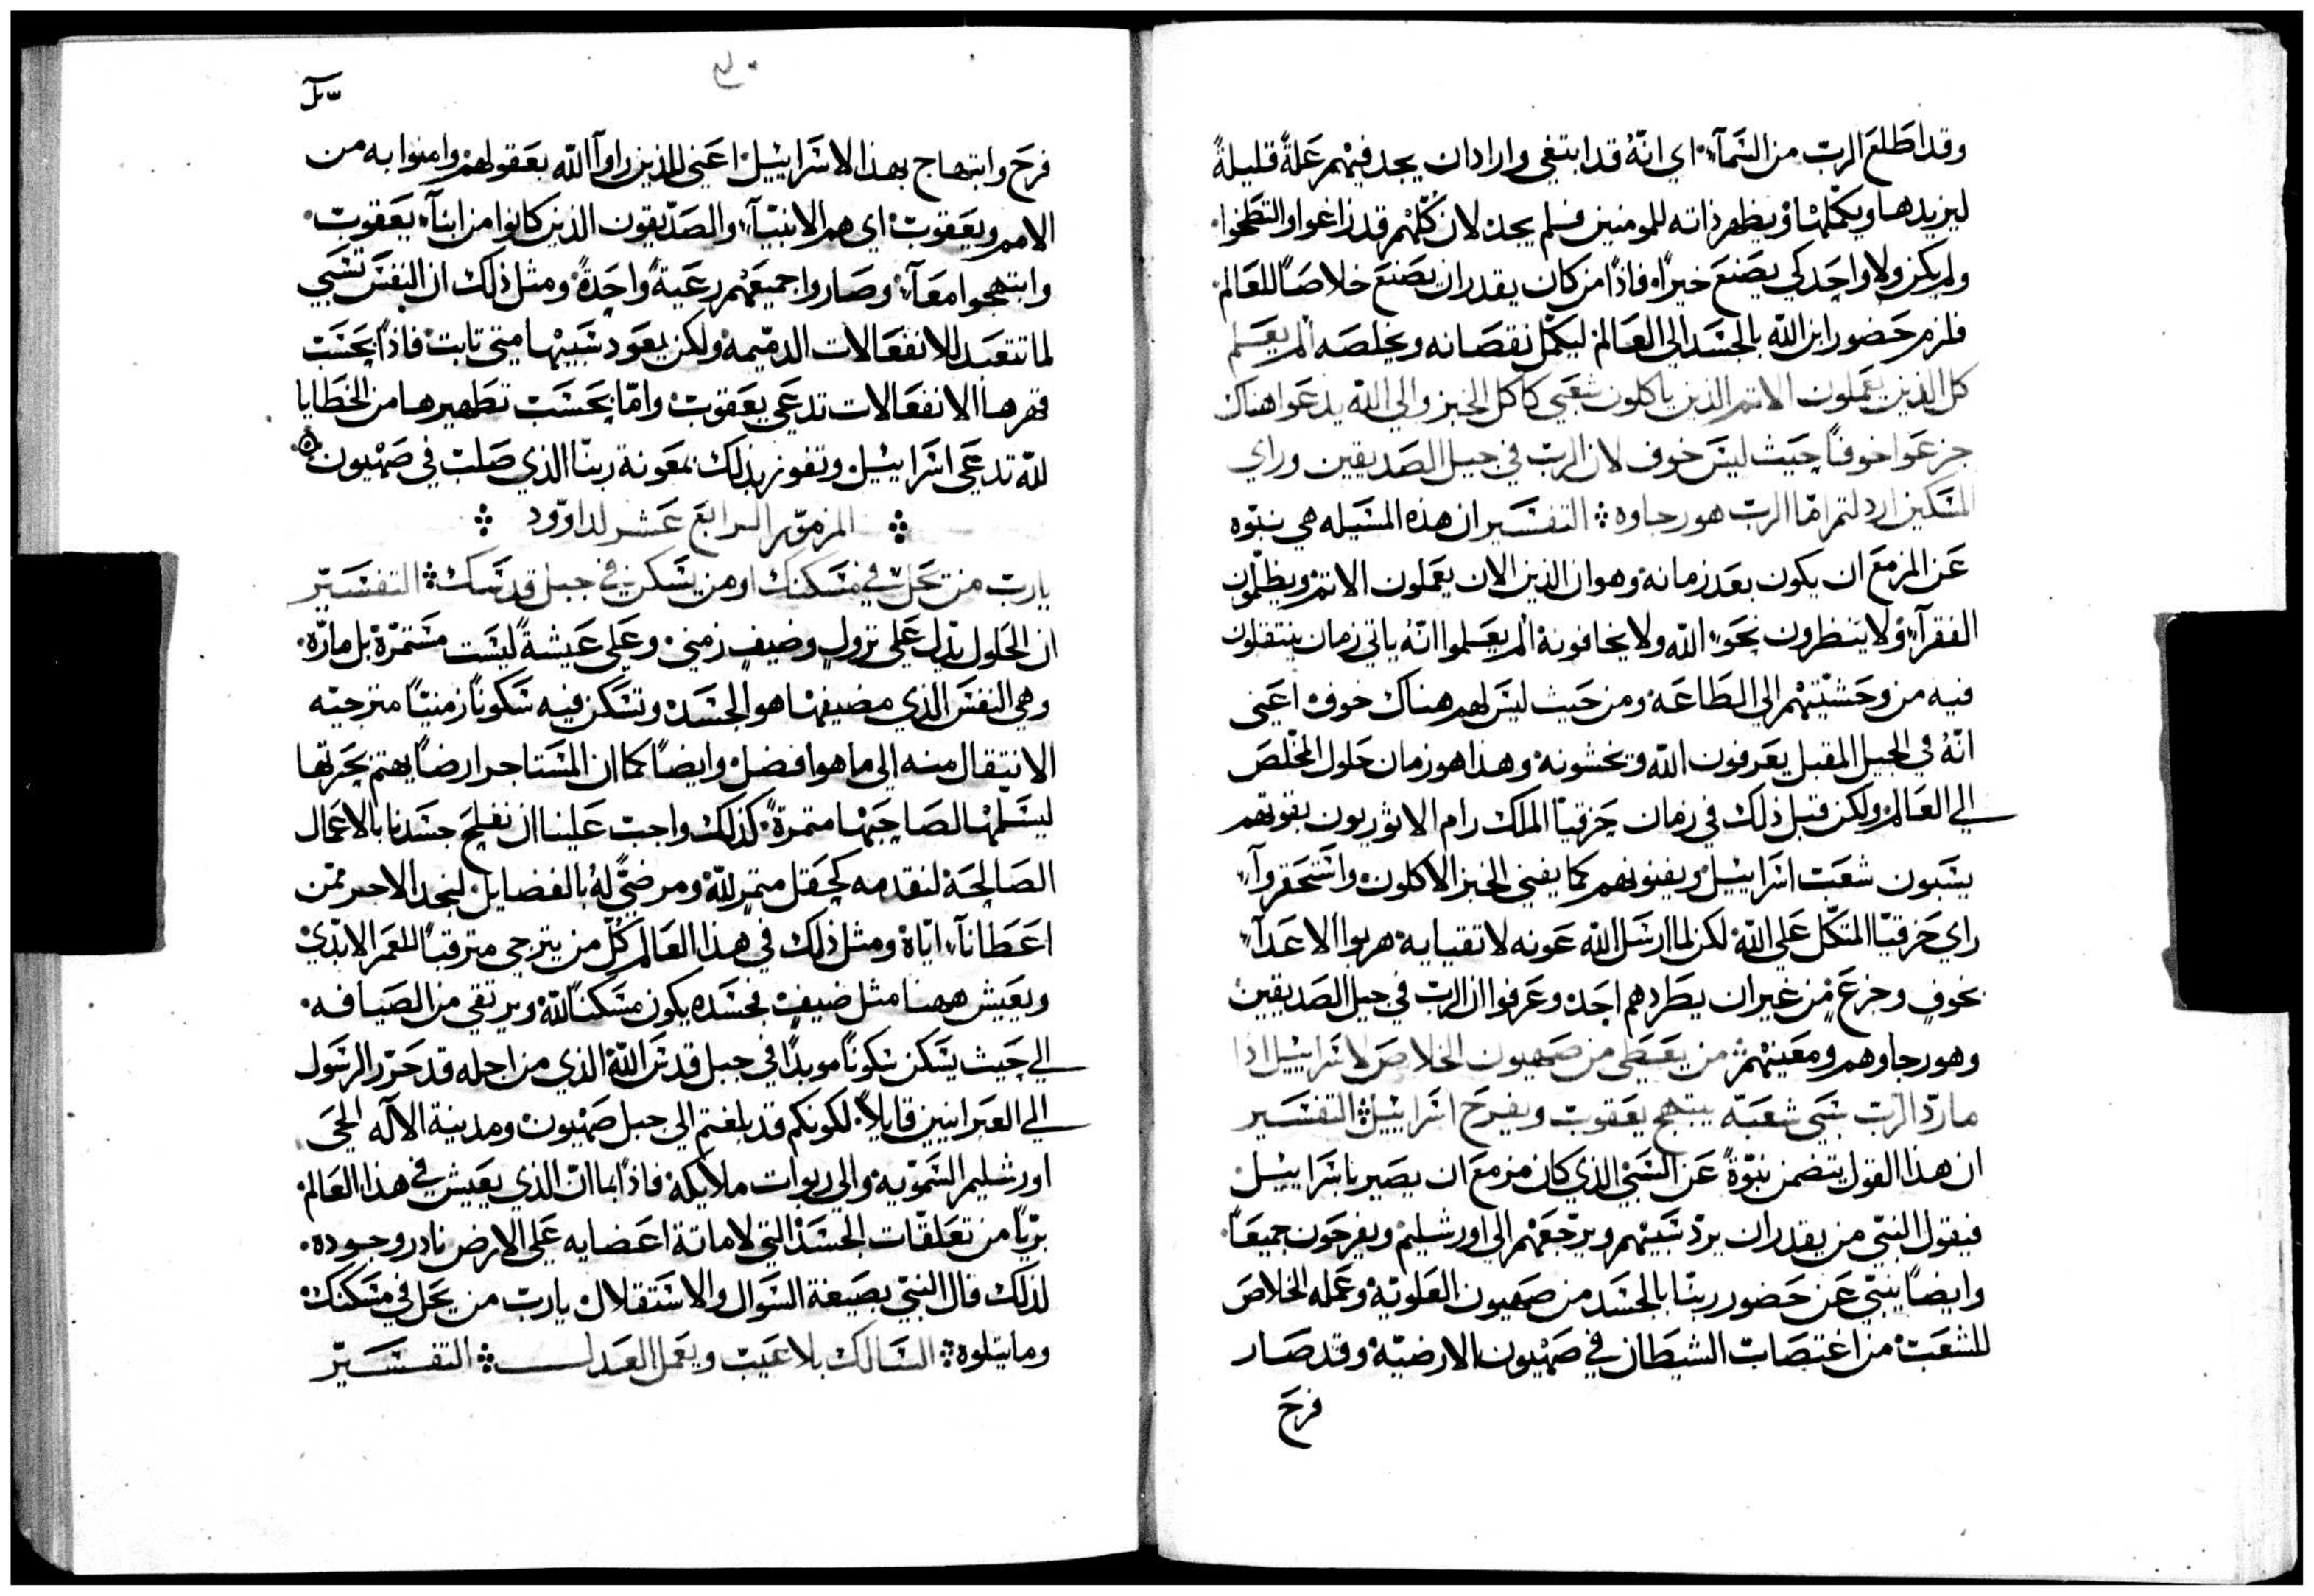 وقد اطّلع الرب من السَمآء اي انّهُ قد ابتغي واراد ان يجد فيهم عَلةً قليلةً
ليزيدها ويكمّلها ويظهر ذاته للمومنين فلم يجد لان كُلّهم قد زاغوا والتطخوا
ولم يكن ولا واحَد كي يصَنعَ خيراً فاذاً من كان يقدر ان يصَنع خلاصَاً للعَالم
فلزم حَضور ابن اللّه بالجسَد الي العَالم ليكمّل نقصَانه ويخلصَه الم يعَلم
كل الذين يعَملون الاثم الذين ياكلون شعَبي كاكل الخبز والي اللّه لم يدعَوا هناك
جزعَوا خوفاً حَيث ليسَ خوف لان الرب في جيل الصَديقين وراي
المسَكين ارذلتم امّا الرب هو رجاوه التفسَير ان هذه المسَيله هي نبوّه
عَن المزمعَ ان يكون بعَد زمانه وهو ان الذين الان يعَملون الاثم ويظلمون
الفقرآء ولا ينظرون نحَو اللّه ولا يخافونه الم يعَلموا انّهُ ياتي زمان ينتقلون
فيه من وحَشيّتهم الي الطاعَة ومن حَيث ليسَ لهم هناك خوف اعَني
انّهُ في الجيل المقبل يعَرفون اللّه ويخشونه وهذا هو زمان حَلول المخلّصَ
الي العَالم ولكن قبل ذلك في زمان حَزقيّا الملك رام الاثوريون بقوتهم
يسَبون شعَب اسَراييل ويفنونهم كما يفني الخبز الاكلون واسَتحَقروآ
راي حَزقيّا المتكّل عَلي اللّه لكن لما ارسَل اللّه عَونه لاتقيايه هربوا الاعَدآء
بخوفٍ وجزعَ من غير ان يطَردهم احَد وعَرفوا ان الرب في جيل الصَديقين
وهو رجاوهم ومعَينهم من يعَطي من صَهيون الخلاصَ لاسَراييل اذا
ما ردّ الرب سَبَي شعَبه يبتهج يعَقوب ويفرحَ اسَراييل التفسَير
ان هذا القول يتضمن نبّوةً عَن السَبي الذي كان مزمعَ ان يصَير باسَراييل
فيقول النبّي من يقدر ان يردّ سَبيهم ويرجّعَهم الي اورشليم ويفرحَون جميعَاً
وايضاً ينبّي عَن حَضور ربنّا بالجسَد من صَهيون العَلويّة وعَمله الخلاصَ
للشعَب من اغتصَاب الشيطان في صَهيون الارضيّة وقد صَار
فرحَ
فرحَ وابتهاج بهذا الاسَراييل اعَني للذين راوآ اللّه بعَقولهم وامنوا به من
الامم ويعَقوب اي هم الانبيّآء والصَدّيقون الذين كانوا من ابنآء يعَقوب
وابتهجوا معَآ وصَاروا جميعَهم رعَيةً واحَدةً ومثل ذلك ان النفسَ تسَبي
لما تتعَبد للانفعَالات الدميّمه ولكن يعَود سَبيها متي تابت فاذاً بحَسَب
قهرها الانفعَالات تدعَي يعَقوب وامّا بحَسَب تطهيرها من الخطَايا
للّه تدعَي اسَراييل وتفوز بذلك بمعَونة ربنّا الذي صَلب في صَهيون
المزمور الرابعَ عَشر لداوود
يارب من يحَل في مسَكنك او من يسَكن في جبل قدسَك التفسَير
ان الحَلول يدّل عَلي نزولٍ وضيفٍ زمني وعَلي عَيشةً ليسَت مسَتمرّة بل مارّة
وهي النفسَ الذي مضيفها هو الجسَد وتسَكن فيه سَكوناً زمنيّاً مترجيّه
الانتقال منه الي ما هو افضل وايضاً كما ان المسَتاجر ارضاً يهتم بحَرثها
ليسَلمها لصَاحَبها مثمرةً كذلك واجب عَلينا ان نفلحَ جسَدنا بالاعَمال
الصَالحَة لنقدمه كحَقل مثمر للّه ومرضيّ لهُ بالفضايل لنجد الاجر ممّن
اعَطانآ ايّاه ومثل ذلك في هذا العَالم كلّ من يترجي مترقباً للعَمر الابديّ
ويعَيش ههنا مثل ضيفٍ فجسَده يكون مسَكناً للّه ويرتقي من الضيافة
الي حَيث يسَكن سَكوناً موبداً في جبل قدسَ اللّه الذي من اجله قد حَرّر الرسَول
الي العَبرانيين قايلاً لكونكم قد بلغتم الي جبل صَهيون ومدينة الآله الحَي
اورشليم السَموّيه والي ربوات ملايكة فاذاً بما انّ الذي يعَيش في هذا العَالم
بريّاً من تعَلقّات الجسَد التي لاماتة اعَضايه عَلي الارض نادر وجوده
لذلك قال النبّي بصَيغة السَوال والاسَتقلال يارب من يحَل في مسَكنك
وما يتلوه السَالك بلا عَيب ويعَمل العَدل التفسَير